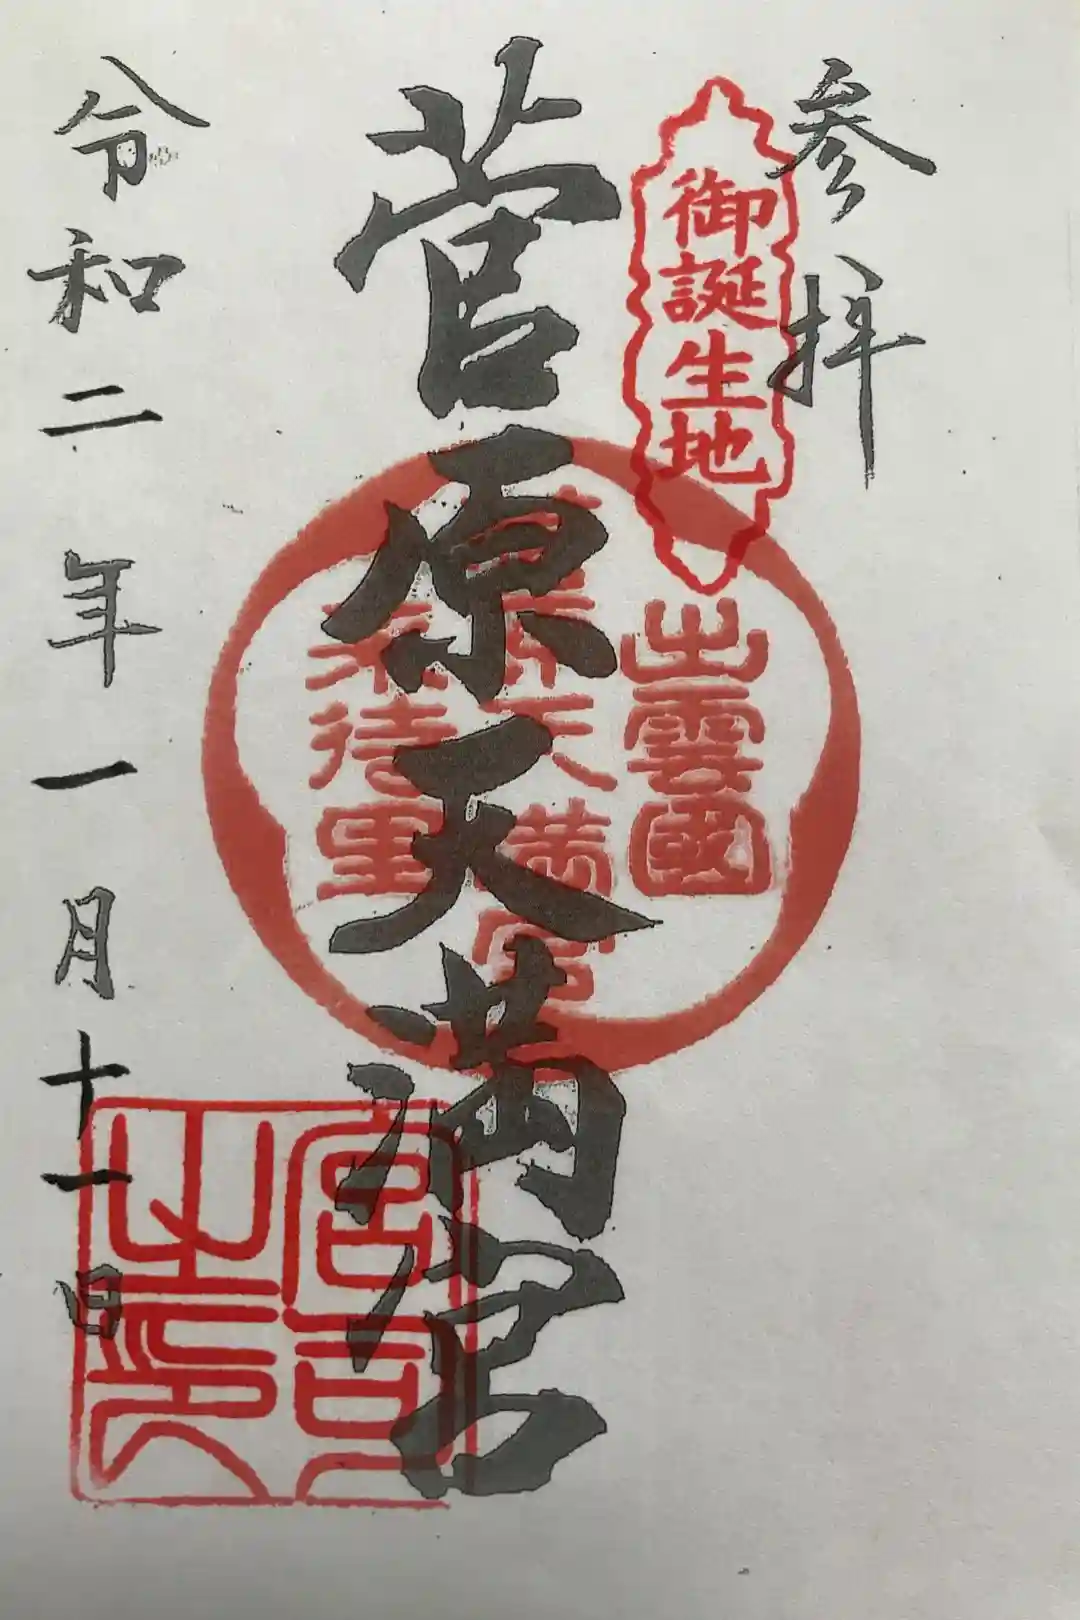 参拝
御誕生地
菅原天満宮
出雲國
菅原天満宮
来待里
宮司
之印
令和二年一月十一日